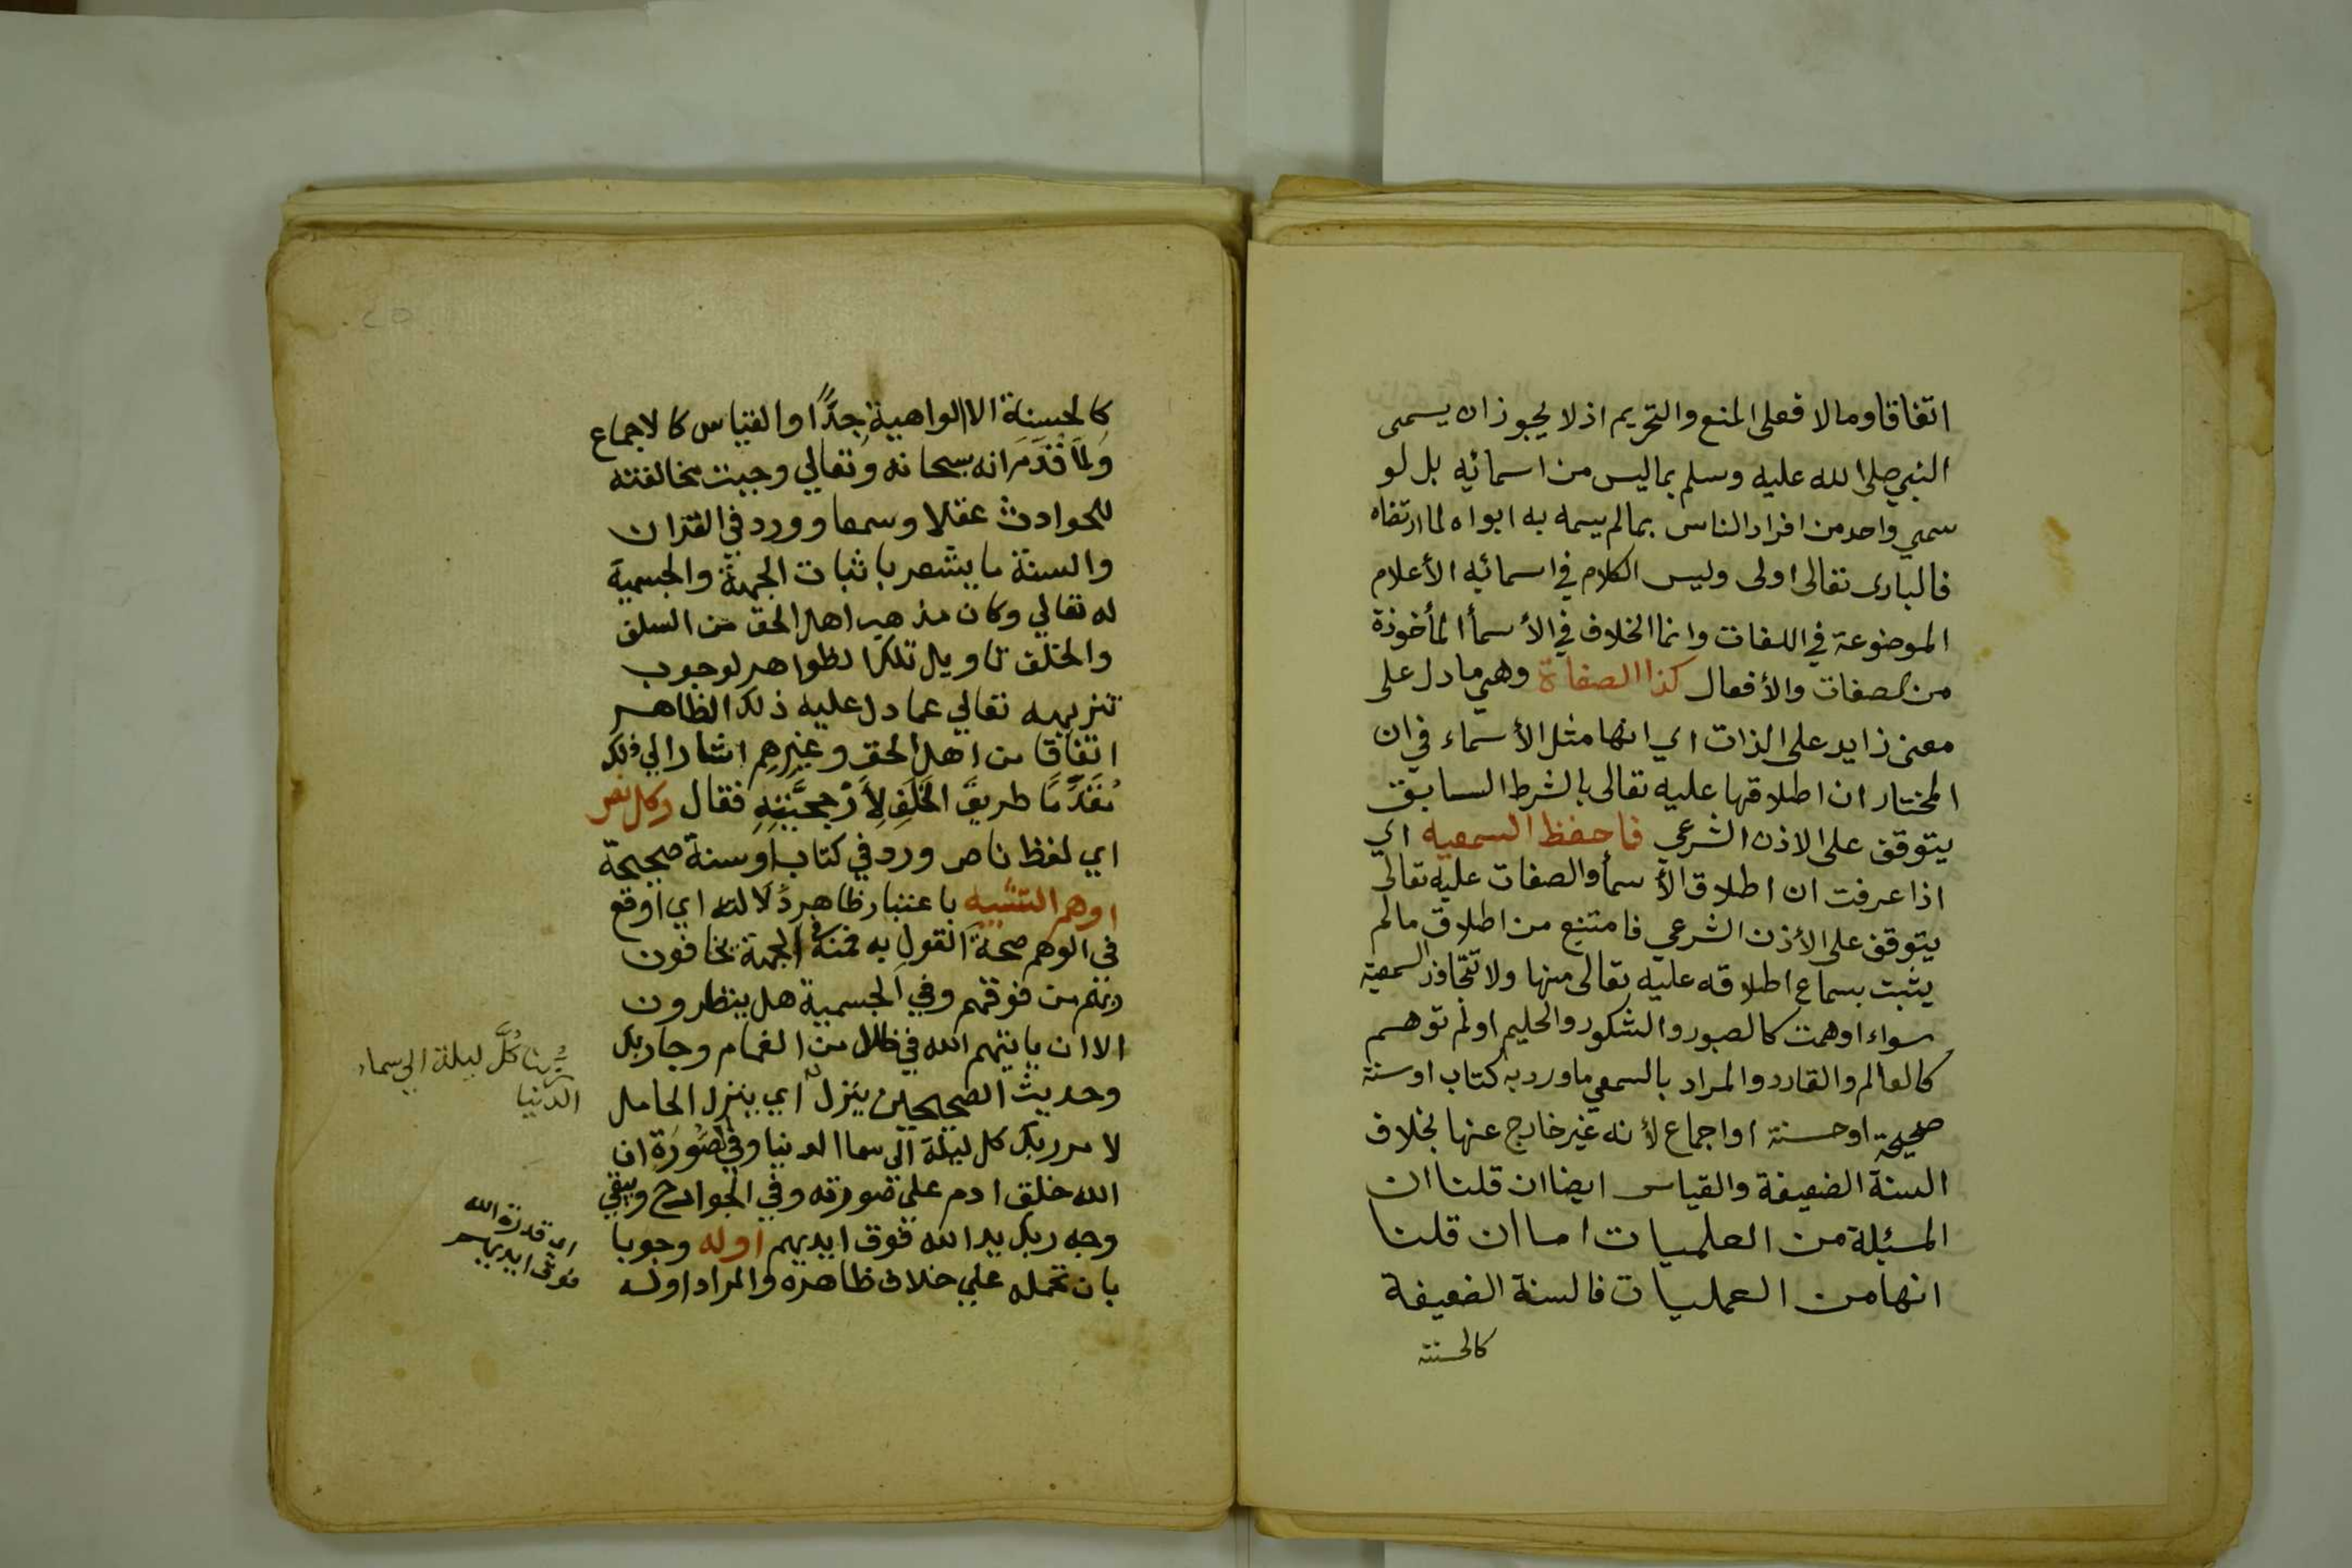 اتفاقا وما لا فعلى المنع والتحريم اذ لا يجوز ان يسمى
النبي صلى الله عليه وسلم بما ليس من اسمائه بل لو
سمي واحد من افراد الناس بما لم يسمه به ابواه لما ارتضاه
فالبارى تعالى اولى وليس الكلام في اسمائه الأعلام
الموضوعة في اللغات وانما الخلاف في الأسمأ المأخوذة
من الصفات والأفعال كذا الصفاة وهي ما دل على
معنى زايد على الذات اي انها مثل الأسماء في ان
المختار ان اطلاقها عليه تعالى بالشرط السابق
يتوقف على الاذن الشرعي فاحفظ السمعيه اي
اذا عرفت ان اطلاق الأسمأ والصفات عليه تعالى
يتوقف على الأذن الشرعي فامتنع من اطلاق ما لم
يثبت بسماع اطلاقه عليه تعالى منها ولا تتجاوز السمعية
سواء اوهمت كالصبور والشكور والحليم او لم توهم
كالعالم والقادر والمراد بالسمعي ما ورد به كتاب او سنة
صحيحة او حسنة او اجماع لأنه غير خارج عنها بخلاف
السنة الضعيفة والقياس ايضا ان قلنا ان
المسئلة من العلميات اما ان قلنا
انها من العمليات فالسنة الضعيفة
كالحسنة
كالحسنة الا الواهية جدًّا والقياس كالاجماع
ولما قدم انه سبحانه وتعالي وجبت مخالفته
للحوادث عقلا وسمعا وورد في القران
والسنة ما يشعر باثبات الجهة والجسمية
له تعالي وكان مذهب اهل الحق من السلف
والخلف تاويل تلك الظواهر لوجوب
تنزيهه تعالي عما دل عليه ذلك الظاهر
اتفاقا من اهل الحق وغيرهم اشار الي ذلك
مُقَدِّمًا طريق الخَلَفِ لِأَرْجحيَّتِهِ فقال وكل نص
اي لفظ ناص ورد في كتاب او سنة صحيحة
اوهم التشبيه باعتبار ظاهر دلالته اي اوقع
في الوهم صحة القول به فمنه في الجهة يخافون
ربهم من فوقهم وفي الجسمية هل ينظرون
الا ان ياتيهم الله في ظلل من الغمام وجا ربك
وحديث الصحيحين ينزل اي ينزل الحامل
لامر ربك كل ليلة الى سما الدنيا وفي الصُّورَة ان
الله خلق ادم على صورته وفي الجوارح ويبقي
وجه ربك يد الله فوق ايديهم اوله وجوبا
بان تحمله علي خلاف ظاهره والمراد اوله
ربُّنا كُلَّ ليلة الي سماء
الدنيا
اي قدرة الله
فوق ايديهم